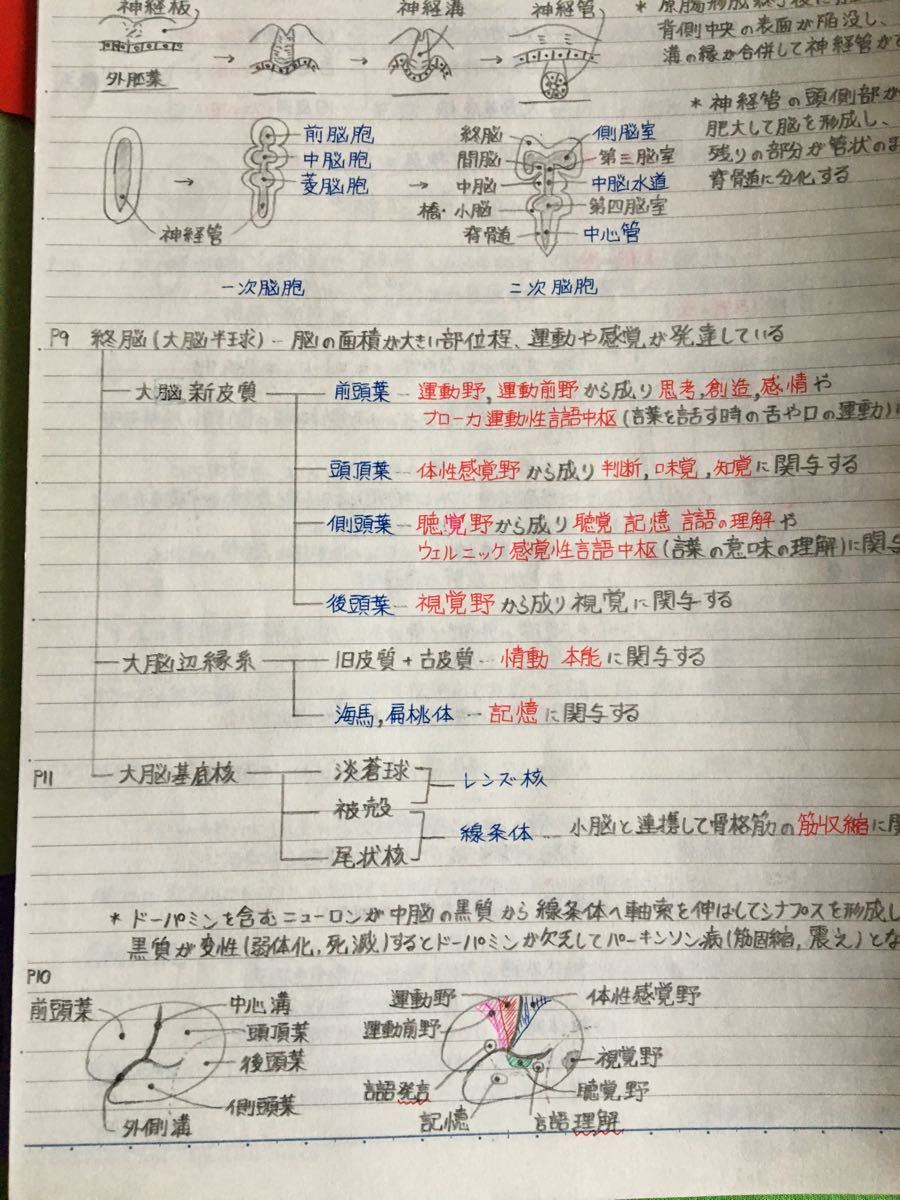 神経板
神経溝
神経管
外胚葉
背側中央の表面が陥没し、
溝の縁が合併して神経管が
前脳胞
中脳胞
菱脳胞
神経管
一次脳胞
終脳
間脳
中脳
橋・小脳
脊骨道
側脳室
第三脳室
中脳水道
第四脳室
中心管
二次脳胞
* 神経管の頭側部が
肥大して脳を形成し、
残りの部分が管状のま
脊骨道に分化する
P9 終脳(大脳半球)…脳の面積が大きい部位程、運動や感覚が発達している
大脳新皮質
前頭葉…運動野,運動前野から成り思考,創造,感情や
ブローカ運動性言語中枢(言葉を話す時の舌や口の運動)
頭頂葉…体性感覚野から成り判断,味覚,知覚に関与する
側頭葉…聴覚野から成り聴覚 記憶 言語の理解や
ウェルニッケ感覚性言語中枢(言葉の意味の理解)に関与
後頭葉…視覚野から成り視覚に関与する
大脳辺縁系
旧皮質+古皮質…情動 本能に関与する
海馬,扁桃体…記憶に関与する
P11 大脳基底核
淡蒼球
被殻
尾状核
レンズ核
線条体…小脳と連携して骨格筋の筋収縮に
* ドーパミンを含むニューロンが中脳の黒質から線条体へ軸索を伸ばしてシナプスを形成し
黒質が変性(弱体化,死滅)するとドーパミンが欠乏してパーキンソン病(筋固縮,震え)とな
P10
前頭葉
中心溝
頭頂葉
後頭葉
側頭葉
外側溝
運動野
運動前野
言語発言
記憶
体性感覚野
視覚野
聴覚野
言語理解